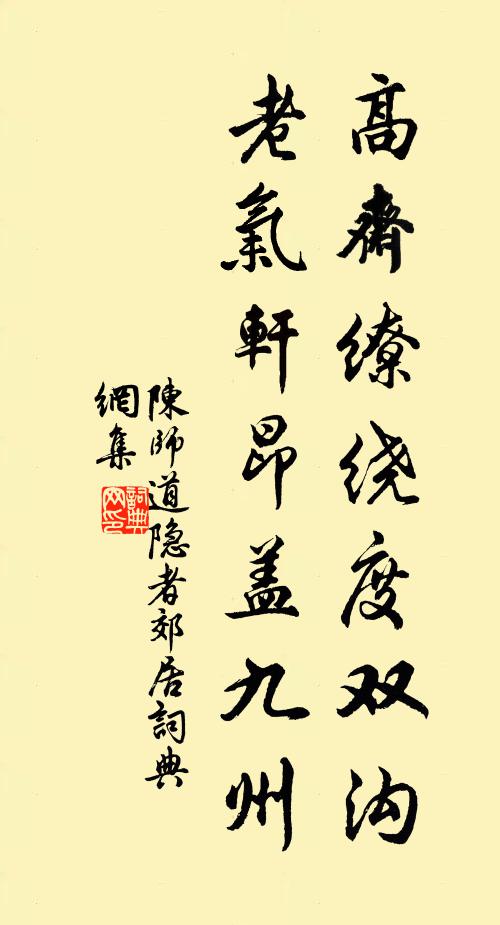 高齋缭绕度双沟
老氣軒昂盖九州
陳師道隐者郊居詞典
網集
詞典
网印